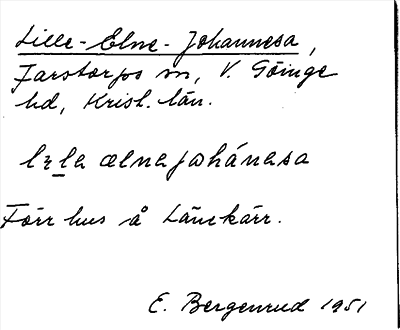 Lille-Elne-Johannesa,
Farstorps sn, V. Göinge
hd, Krist. län.
lɩla ælnajohánəsa
Förr hus å Länekärr.
E. Bergenrud 1951